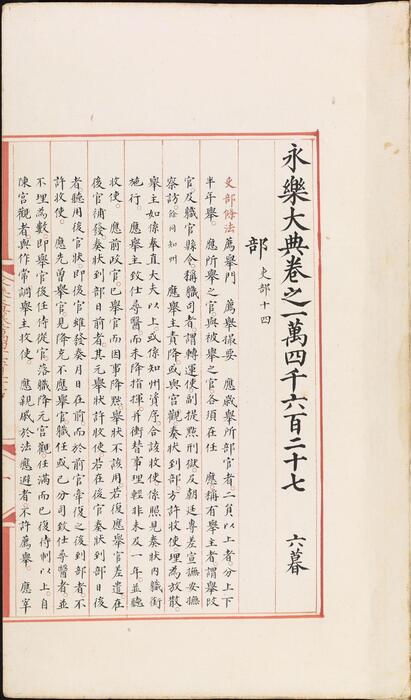 永樂大典卷之一萬四千六百二十七 六暮
部 吏部十四
吏部條法 薦舉門 薦舉撮要 應歲舉所部官者二員以上者分上下
半年舉 應所舉之官與被舉之官各須在任 應稱有舉主者謂舉改
官及職官縣令稱職司者謂轉運使副提點刑獄及朝廷專差宣撫安撫
察訪餘同知州 應舉主責降或與宮觀奏狀到部方許收使理為放散
舉主如係奉直大夫以上或係知州資序合該收使係照見奏狀內職銜
施行 應舉主致仕尋醫而未降指揮并衝替事理輕非未及一年並聽
收使 應前政官已舉官而因事降黜舉狀不該用若後應舉官差遣在
後官補發奏狀到部日前者其元舉狀許收使若在後官奏狀到部日後
者聽用後官狀即後官雖發奏月日在前而於前官牽復之後到部者不
許收使 應先曾舉官見降充不應舉官職任或已分司致仕尋醫者並
不理為數即舉官後任侍從官落職降元宮觀任滿而已復待制以上自
陳宮觀者與作常調舉主收使 應親戚於法應避者不許薦舉 應宰